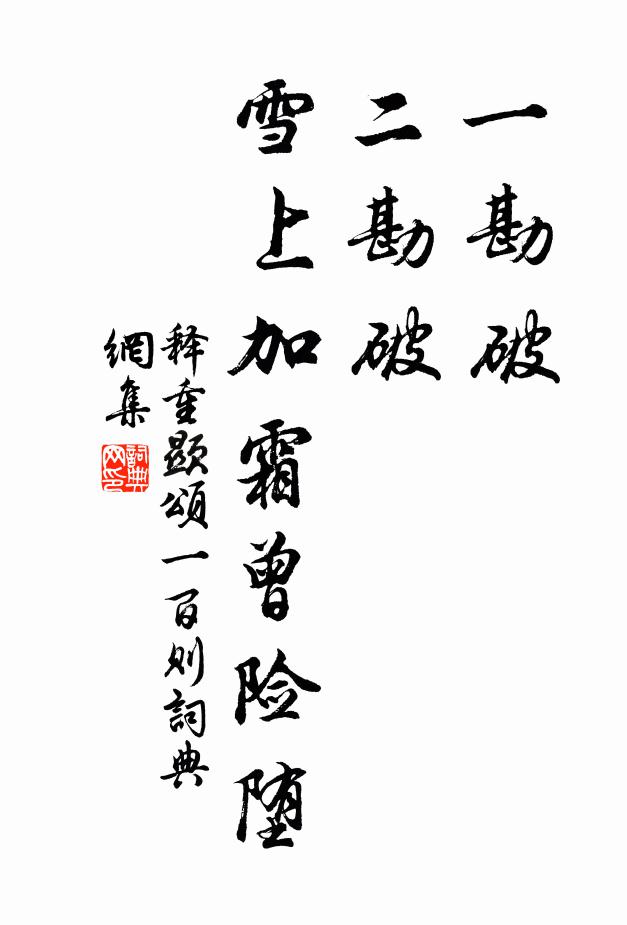 一勘破
二勘破
雪上加霜曾险堕
释重显颂一百则詞典
網集
詞典
网印